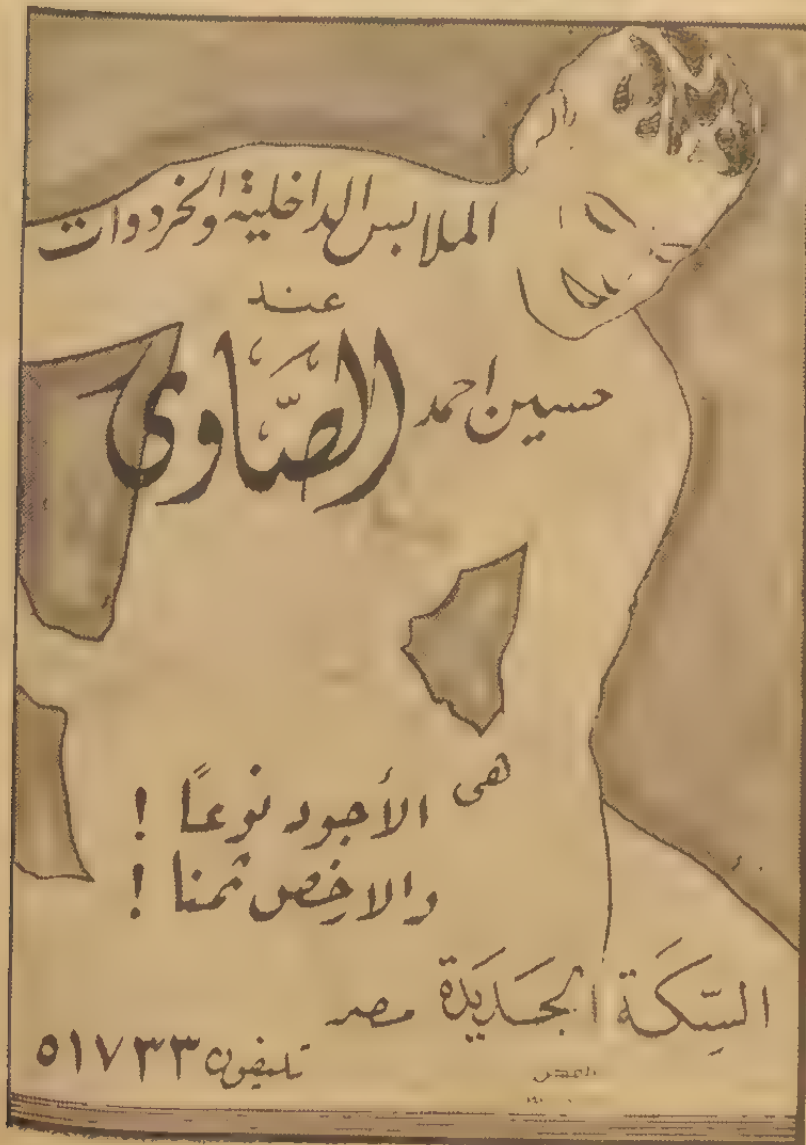 الملابس الداخلية والخردوات
عند
حسين احمد الصَّاوى
هى الأجود نوعاً !
والارخص ثمنا !
السِّكَّة الجَديَدة مصر
تليفون ٥١٧٣٣